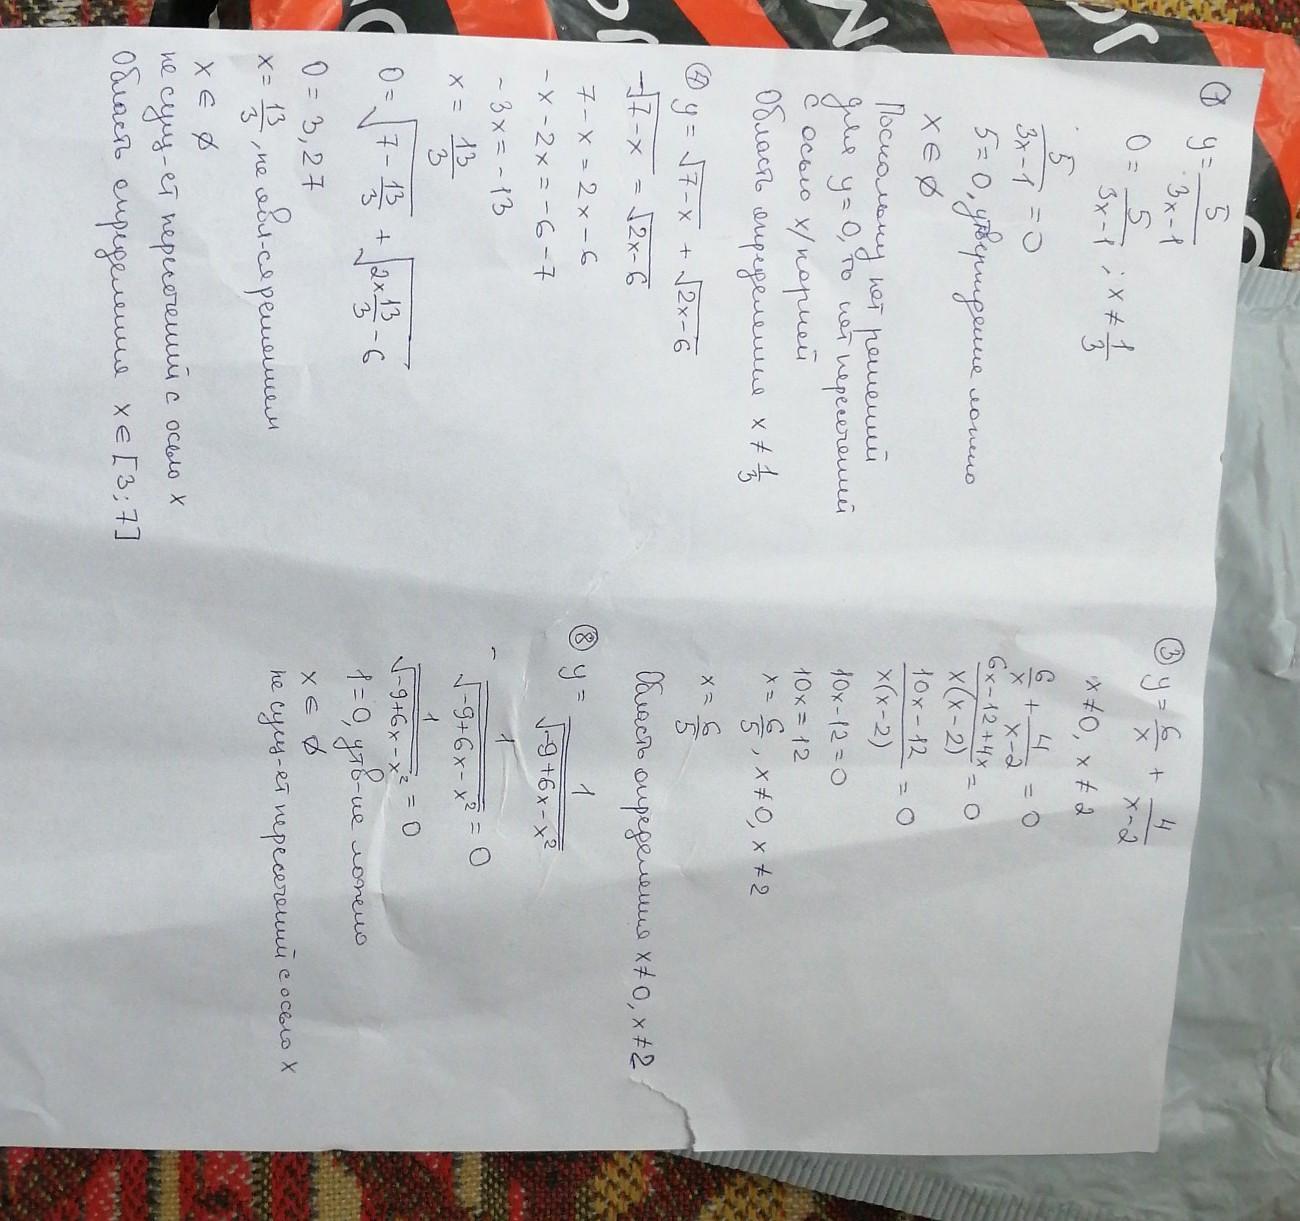 ① y = 5/(3x-1)
0 = 5/(3x-1) ; x ≠ 1/3
5/(3x-1) = 0
5 = 0, утверждение ложно
x ∈ ∅
Поскольку нет решений
для y = 0, то нет пересечений
с осью x/корней
Область определения x ≠ 1/3
④ y = √(7-x) + √(2x-6)
-√(7-x) = √(2x-6)
7-x = 2x-6
-x-2x = -6-7
-3x = -13
x = 13/3
0 = √(7-13/3) + √(2x13/3-6)
0 = 3,27
x = 13/3, не явл-ся решением
x ∈ ∅
не сущ-ет пересечений с осью x
Область определения x ∈ [3;7]
③ y = 6/x + 4/(x-2)
x ≠ 0, x ≠ 2
6/x + 4/(x-2) = 0
(6x-12+4x)/(x(x-2)) = 0
(10x-12)/(x(x-2)) = 0
10x-12 = 0
10x = 12
x = 6/5, x ≠ 0, x ≠ 2
x = 6/5
Область определения x ≠ 0, x ≠ 2
⑧ y = 1/√(-9+6x-x²)
1/√(-9+6x-x²) = 0
1/√(-9+6x-x²) = 0
1 = 0, утв-ие ложно
x ∈ ∅
не сущ-ет пересечений с осью x